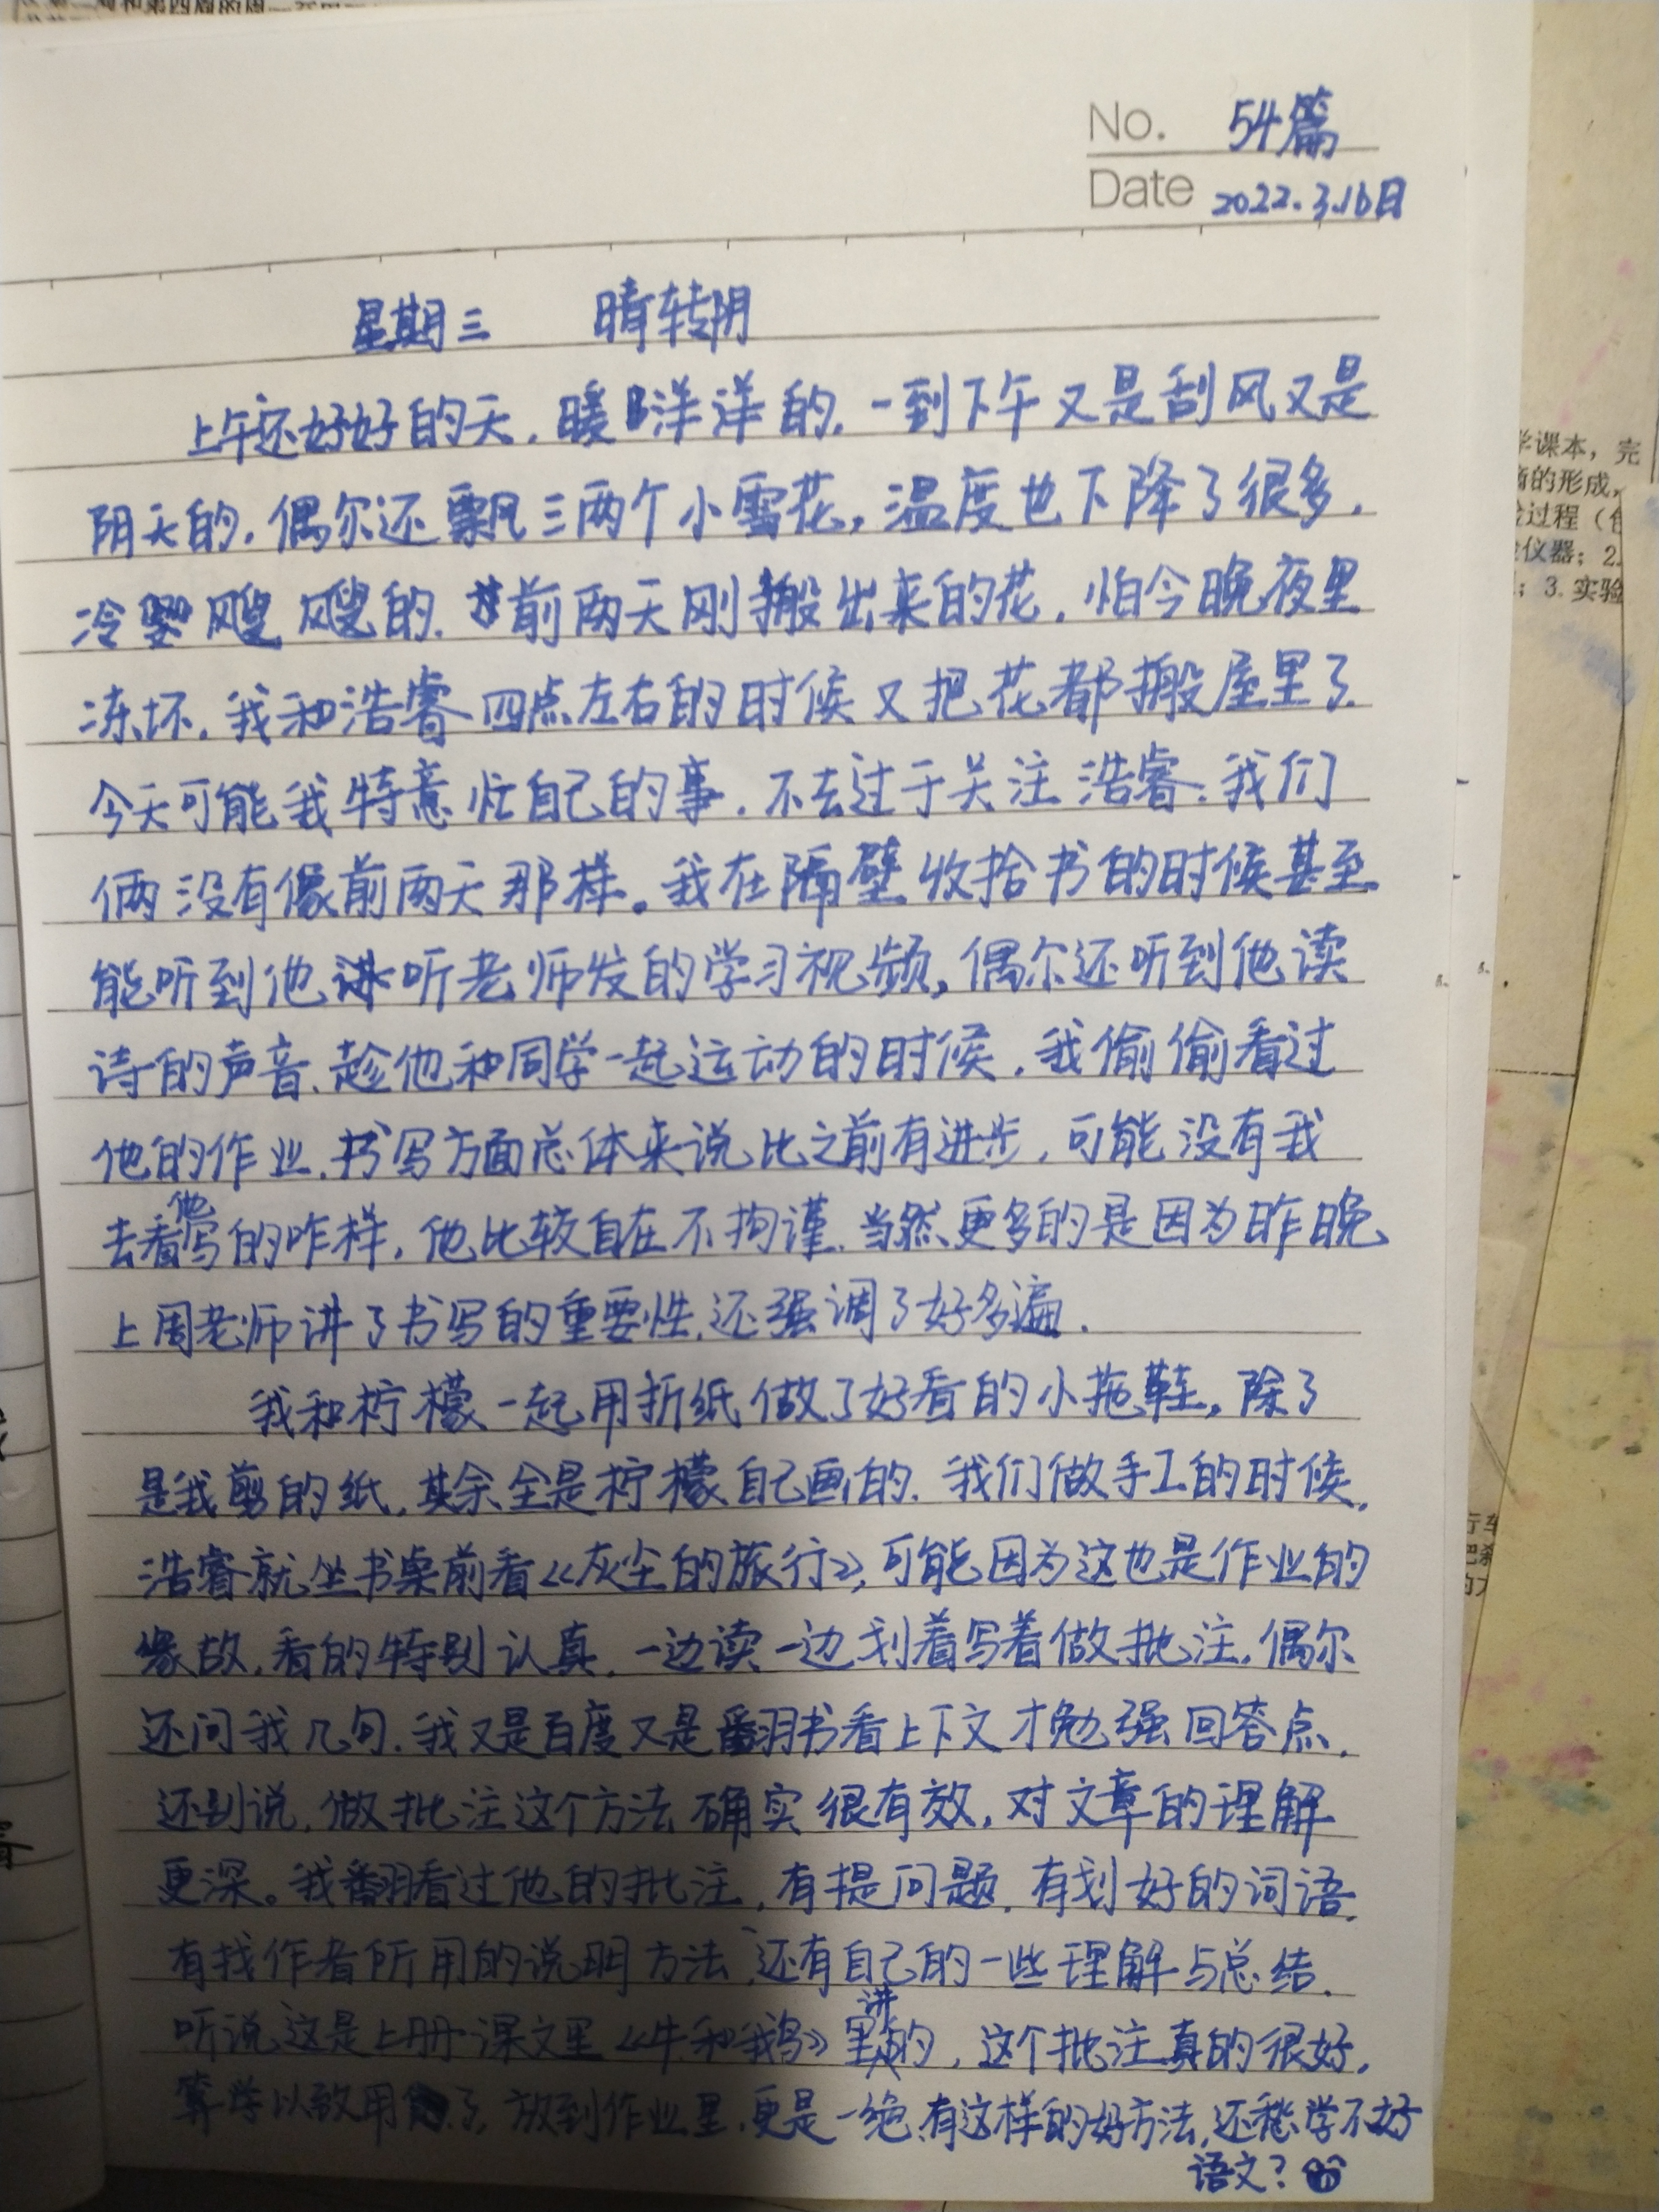 No. 54篇
Date 2022.3.16日
星期三 晴转阴
上午还好好的天,暖洋洋的.一到下午又是刮风又是
阴天的.偶尔还飘三两个小雪花,温度也下降了很多.
冷飕飕的.前两天刚搬出来的花,怕今晚夜里
冻坏.我和浩睿四点左右的时候又把花都搬屋里了.
今天可能我特意忙自己的事.不去过于关注浩睿.我们
俩没有像前两天那样。我在隔壁收拾书的时候甚至
能听到他听老师发的学习视频,偶尔还听到他读
诗的声音.趁他和同学一起运动的时候,我偷偷看过
他的作业.书写方面总体来说比之前有进步,可能没有我
去看他写的咋样,他比较自在不拘谨.当然更多的是因为昨晚
上周老师讲了书写的重要性.还强调了好多遍.
我和柠檬一起用折纸做了好看的小拖鞋,除了
是我剪的纸,其余全是柠檬自己画的.我们做手工的时候,
浩睿就坐书桌前看《灰尘的旅行》,可能因为这也是作业的
缘故,看的特别认真.一边读一边划着写着做批注.偶尔
还问我几句.我又是百度又是翻书看上下文才勉强回答点.
还别说,做批注这个方法确实很有效,对文章的理解
更深。我翻看过他的批注,有提问题.有划好的词语.
有找作者所用的说明方法,还有自己的一些理解与总结.
听说这是上册课文里《牛和鹅》里讲的,这个批注真的很好,
算学以致用了,放到作业里.更是一绝.有这样的好方法,还愁学不好
语文?
学课本,完
的形成,
过程(
仪器;2.
;3.实验